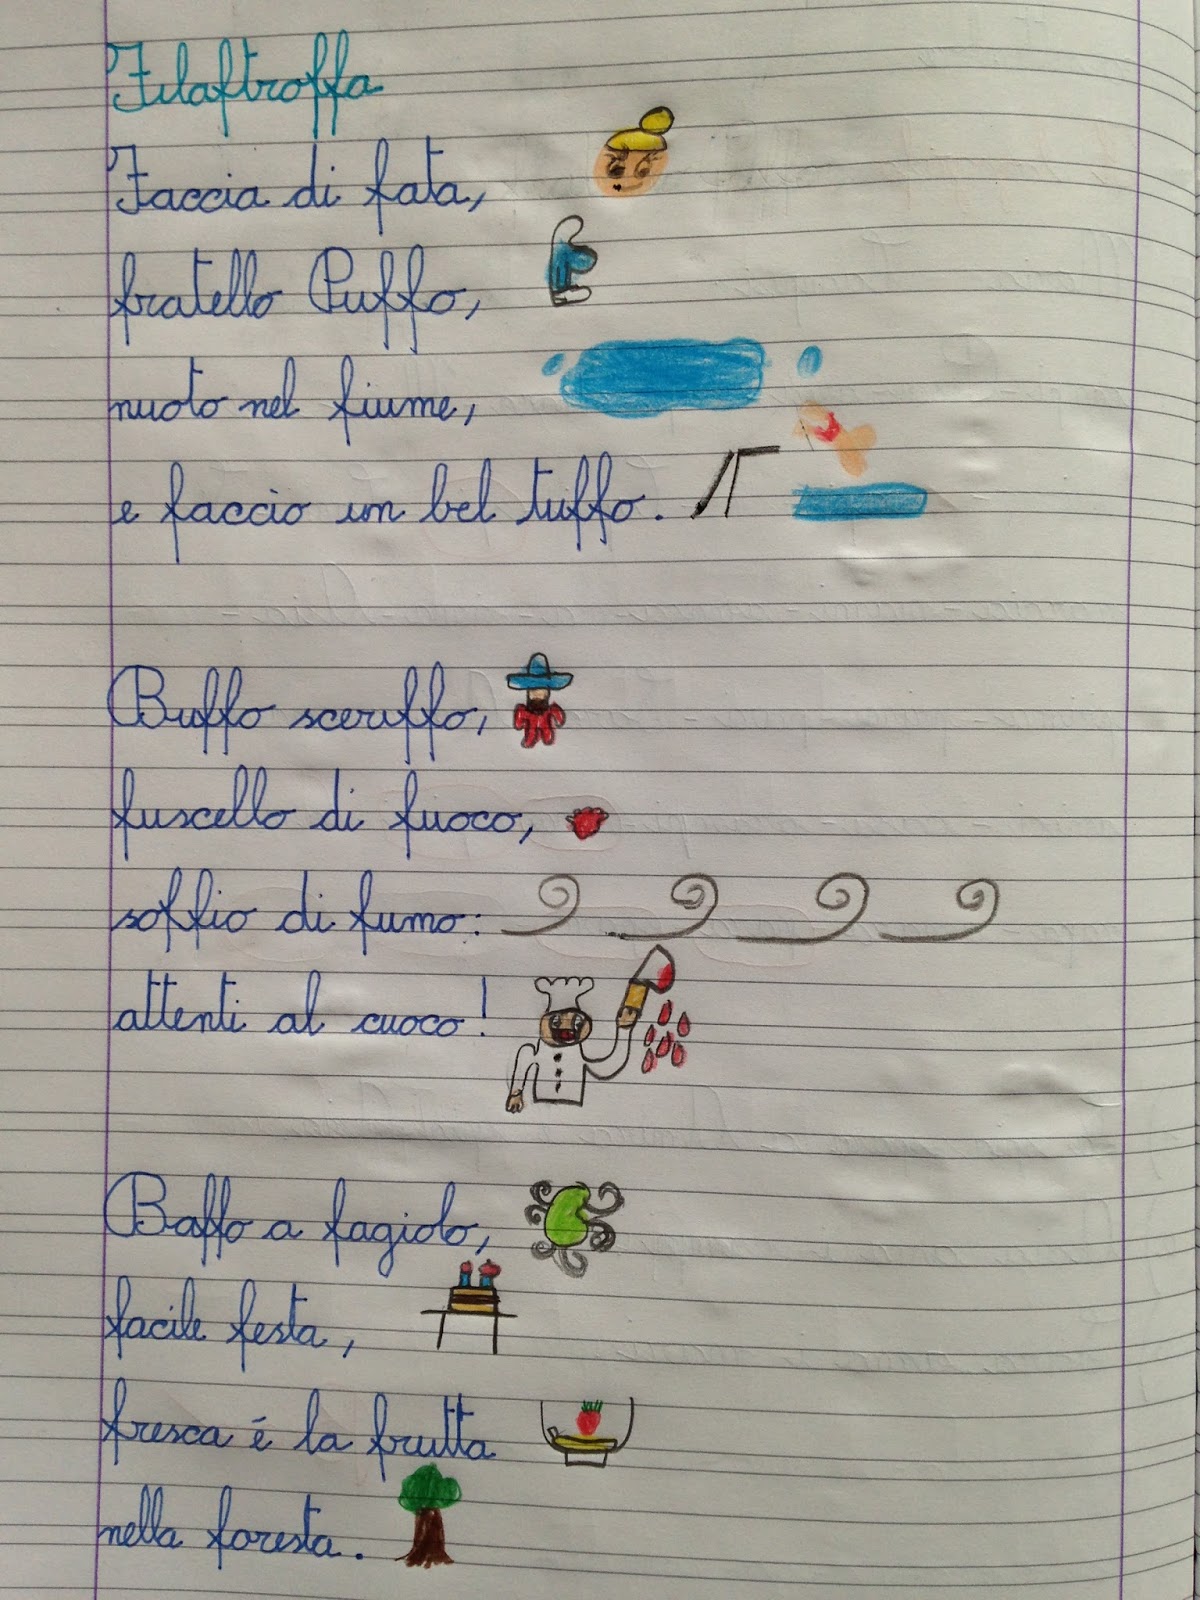 Filaftroffa
Faccia di fata,
fratello Puffo,
nuoto nel fiume,
e faccio un bel tuffo.
Buffo sceruffo,
fuscello di fuoco,
soffio di fumo:
attenti al cuoco!
Baffo a fagiolo,
facile festa,
fresca é la frutta
nella foresta.